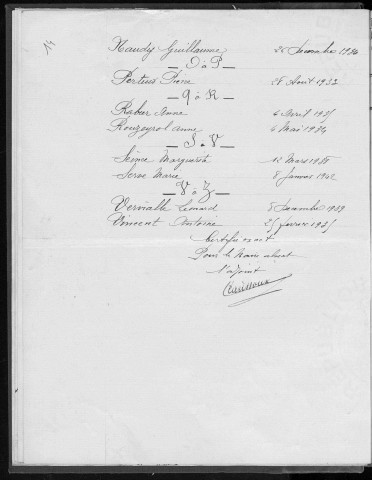 Naudy Guillaume 28 Décembre 1936
O à P
Perteus Pierre 28 Août 1933
Q à R
Rabier Anna 6 Avril 1935
Rouzeyrol Anna 6 Mai 1934
S à V
Seine Marguerite 12 Mars 1938
Serve Marie 8 Janvier 1942
V à Z
Vervialle Léonard 8 Décembre 1939
Vincent Antoine 25 février 1935
Certifié exact
Pour le Maire absent
l'adjoint